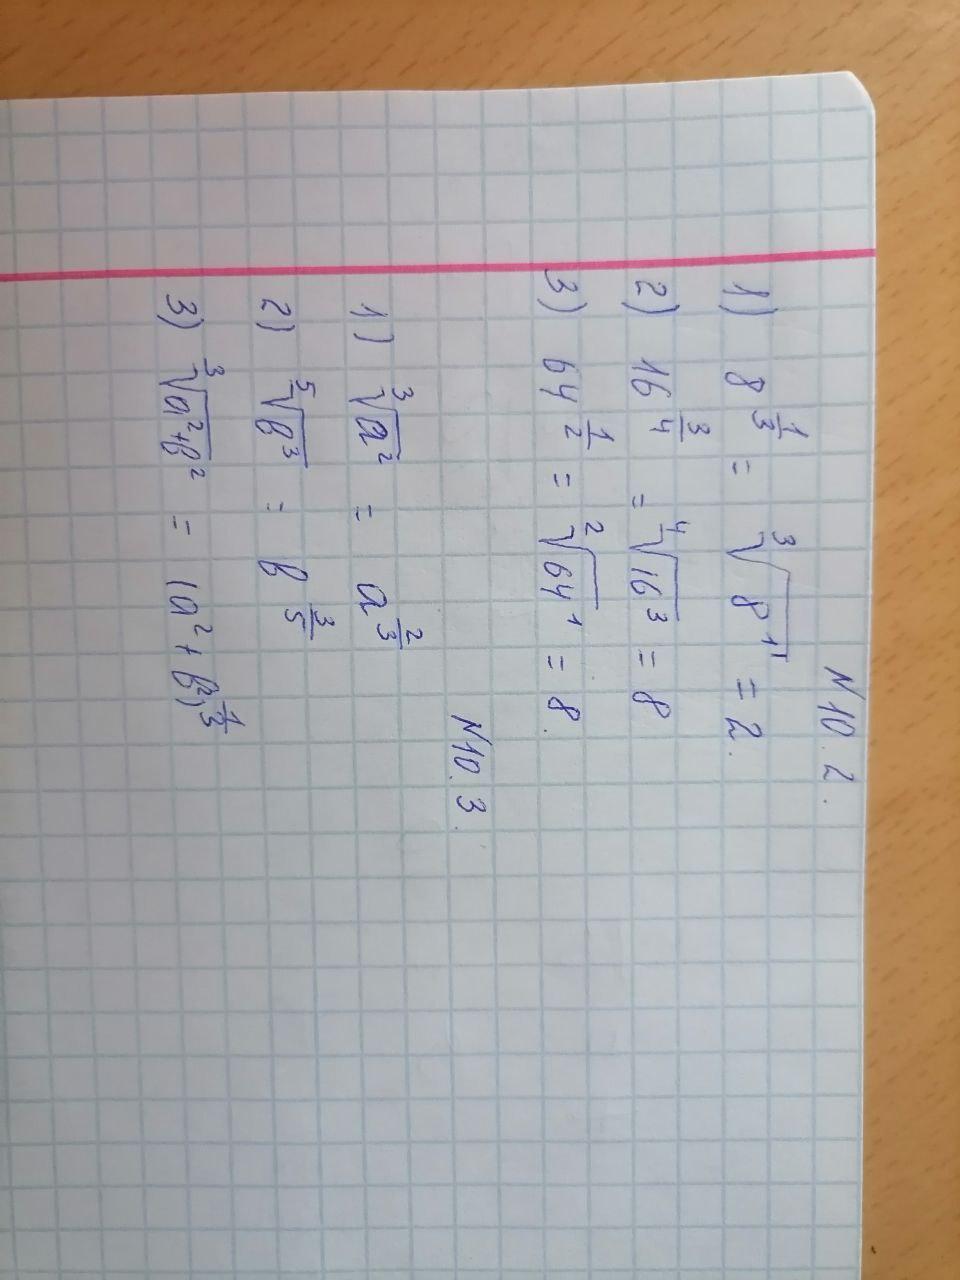 N 10. 2.
1) 8^{\frac{1}{3}} = \sqrt[3]{8^1} = 2.
2) 16^{\frac{3}{4}} = \sqrt[4]{16^3} = 8
3) 64^{\frac{1}{2}} = \sqrt[2]{64^1} = 8.
N 10. 3.
1) \sqrt[3]{a^2} = a^{\frac{2}{3}}
2) \sqrt[5]{b^3} = b^{\frac{3}{5}}
3) \sqrt[3]{a^2+b^2} = (a^2+b^2)^{\frac{1}{3}}